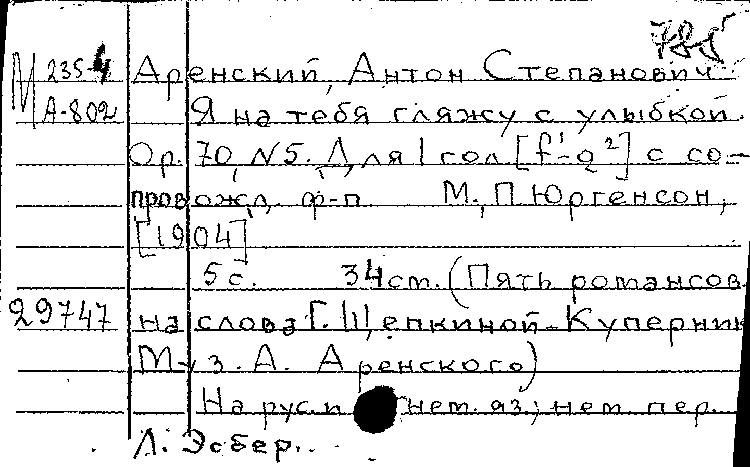 М 2354 Аренский, Антон Степанович.
А-802 Я на тебя гляжу с улыбкой.
Op. 70, N5. Для 1 гол [f¹-g²] с со-
провожд. ф-п. М., П. Юргенсон,
[1904]
5 с. 34 ст. (Пять романсов
29747 на слова Т. Щепкиной-Куперник
Муз. А. Аренского)
На рус. и нем. яз.; нем. пер.
Л. Эсбер.